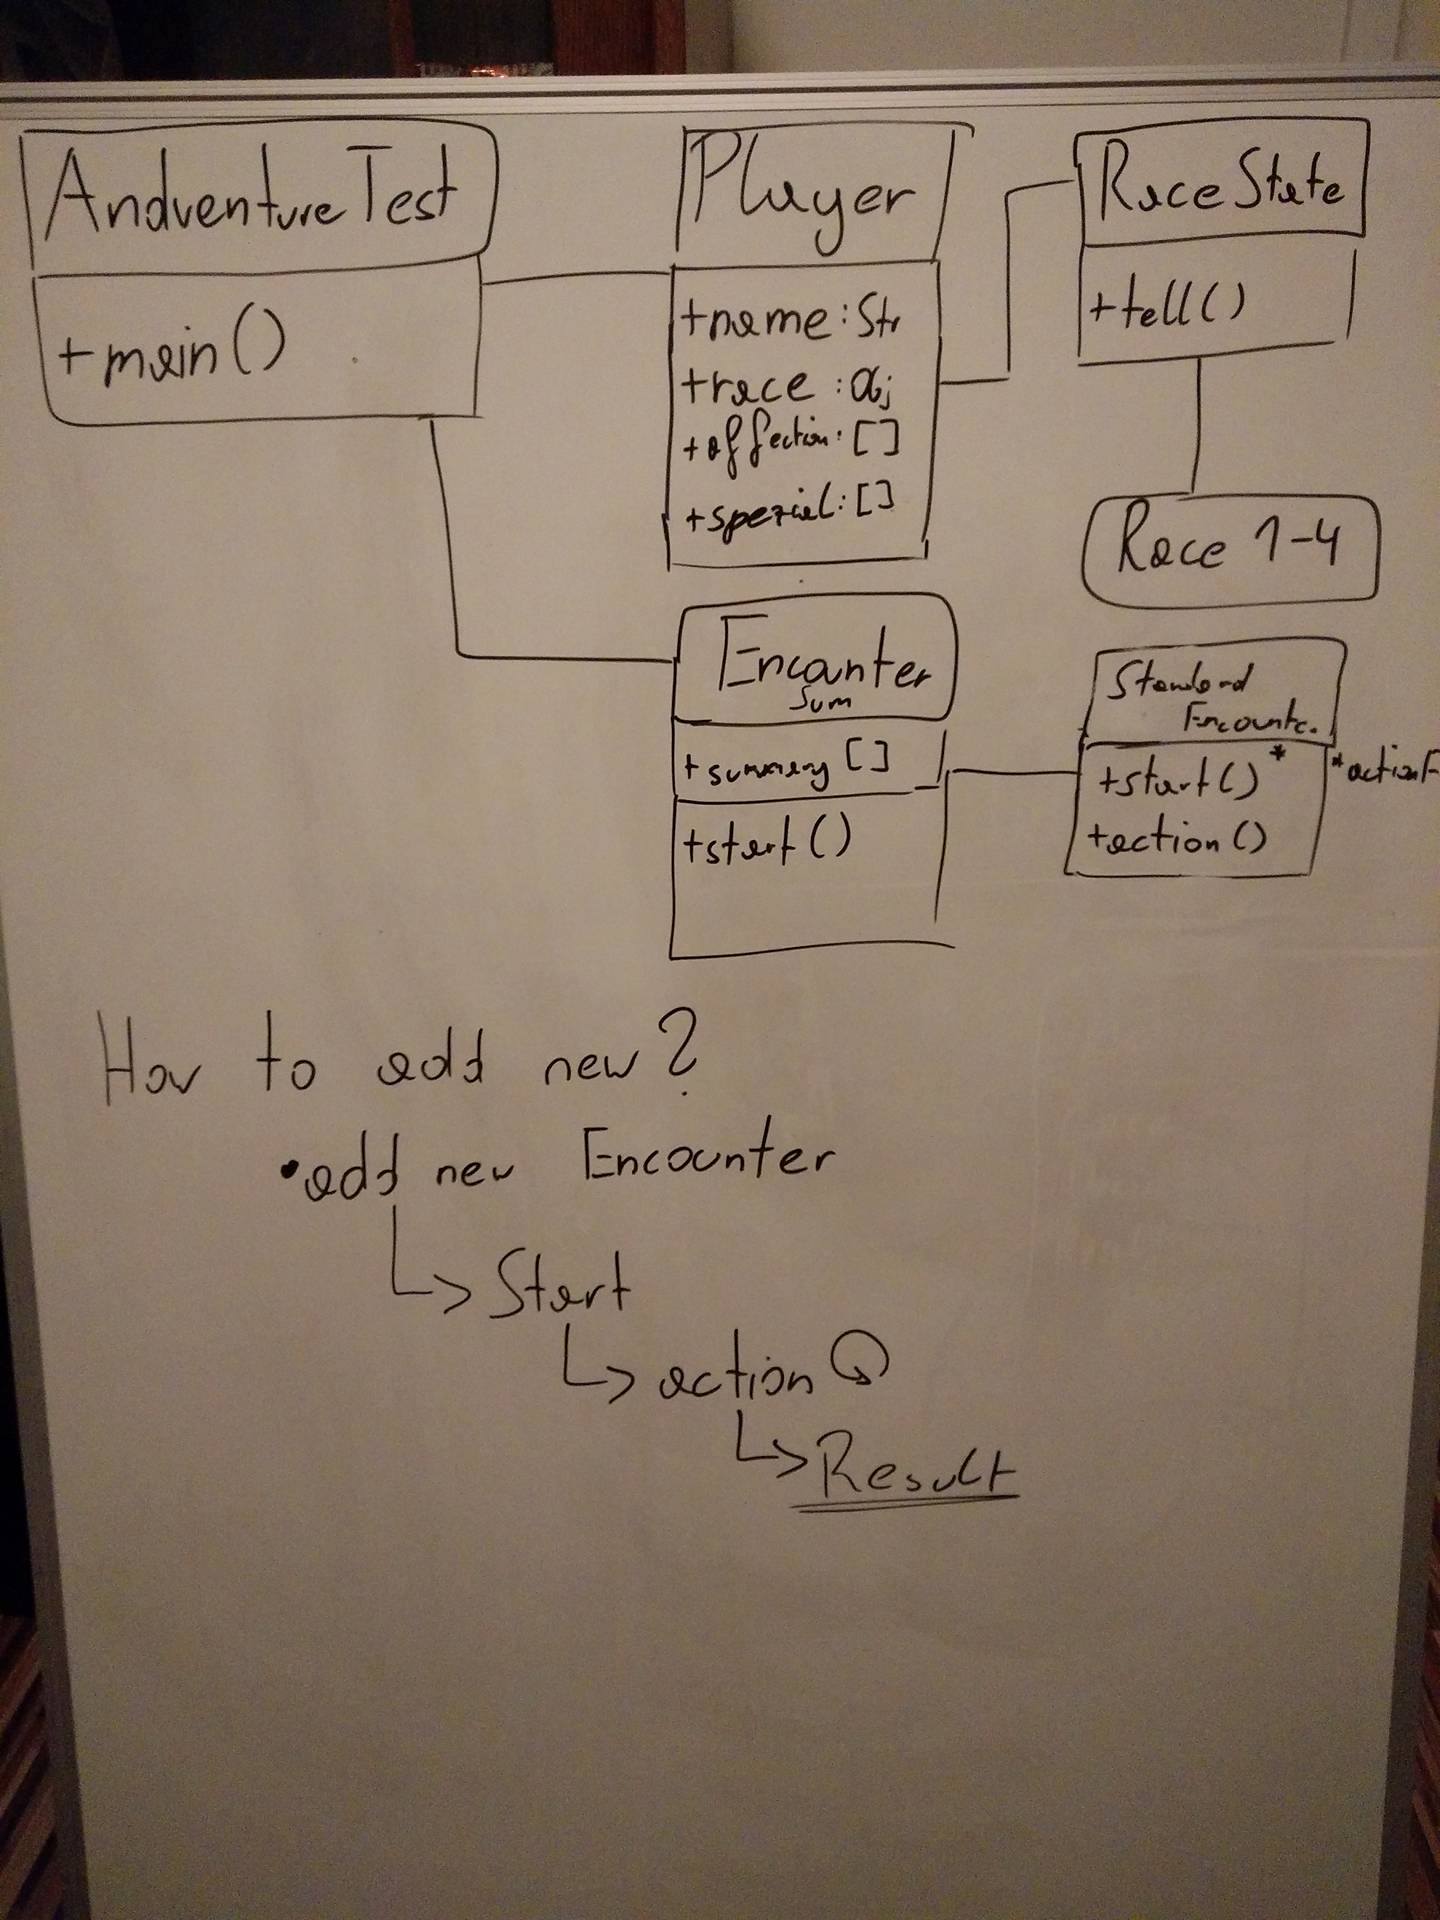 AndventureTest
+main()
Player
+name: Str
+race: obj
+affection: []
+spezial: []
RaceState
+tell()
Race 1-4
Encounter
Sum
+summery []
+start()
Standard
Encounte.
+start()*
+action()
*actionF
How to add new?
•add new Encounter
Start
action
Result